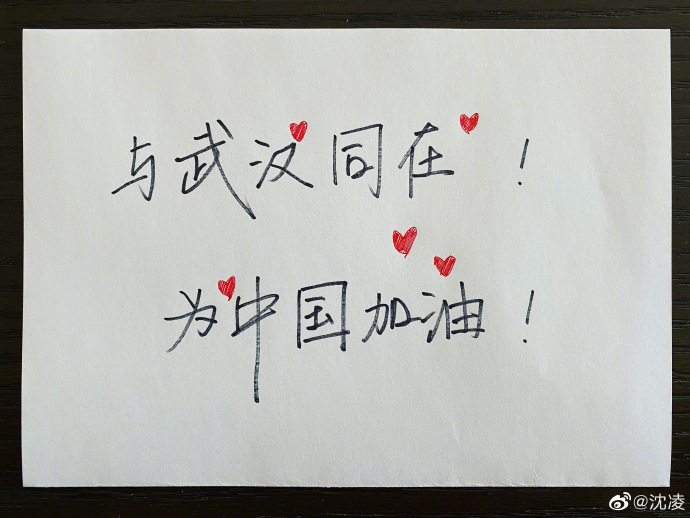 与武汉同在！
为中国加油！
@沈凌